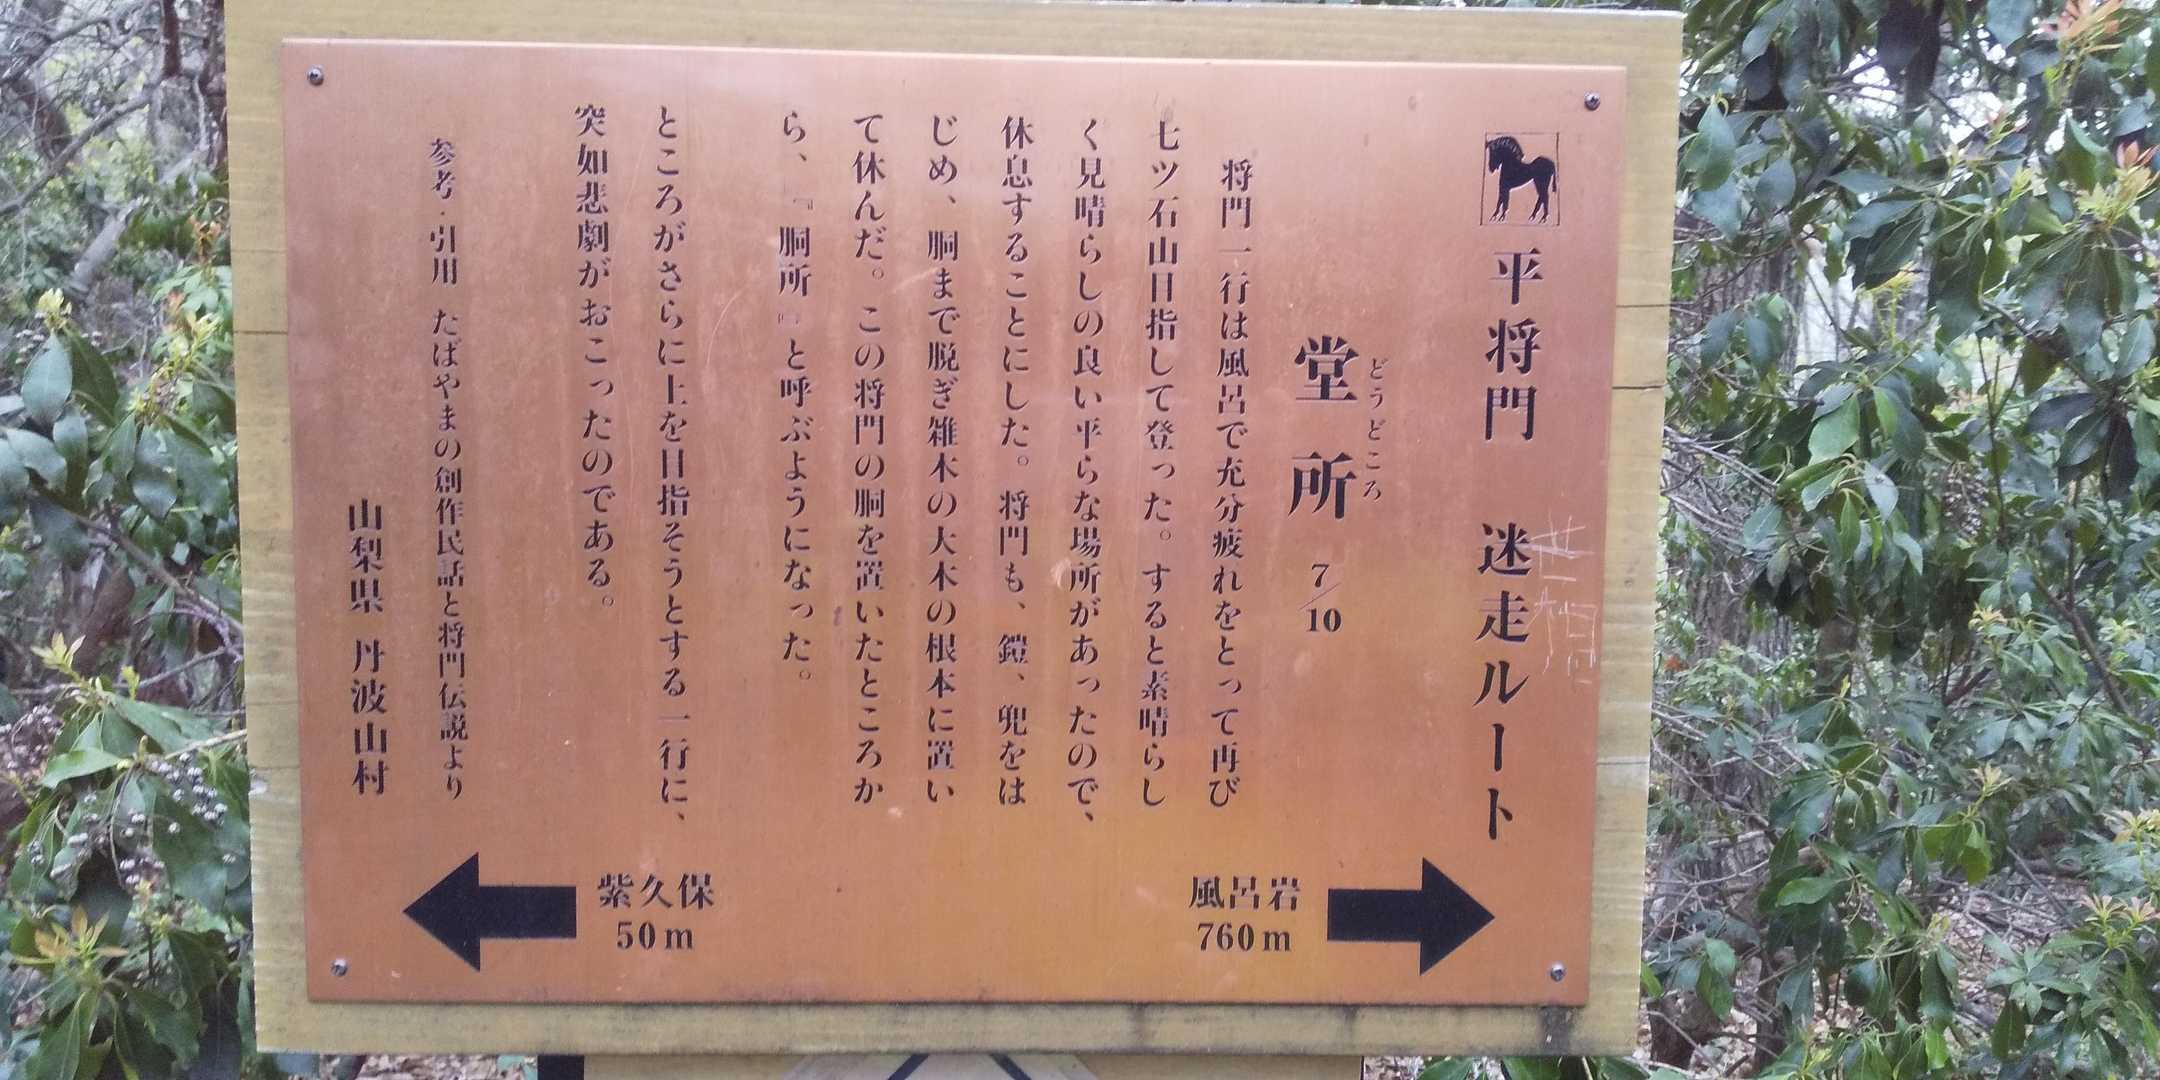 平将門 迷走ルート
堂所 7/10
どうどころ
将門一行は風呂で充分疲れをとって再び
七ツ石山目指して登った。すると素晴らし
く見晴らしの良い平らな場所があったので、
休息することにした。将門も、鎧、兜をは
じめ、胴まで脱ぎ雑木の大木の根本に置い
て休んだ。この将門の胴を置いたところか
ら、『胴所』と呼ぶようになった。
ところがさらに上を目指そうとする一行に、
突如悲劇がおこったのである。
参考・引用 たばやまの創作民話と将門伝説より
山梨県 丹波山村
風呂岩
760m
紫久保
50m